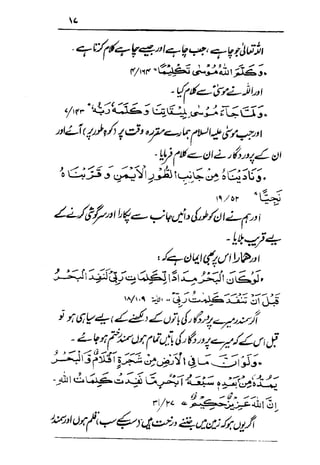 ۱۷
اللہ تعالیٰ جو چاہے، جب چاہے اور جیسے چاہے کلام کرتا ہے۔
وَكَلَّمَ اللهُ مُوْسٰى تَكْلِيْمًا ۴/۱۶۴
اور اللہ نے موسیٰ سے کلام کیا۔
وَلَمَّا جَآءَ مُوْسٰى لِمِيْقَاتِنَا وَكَلَّمَهٗ رَبُّهٗ ۷/۱۴۳
اور جب موسیٰ علیہ السلام ہمارے مقررہ وقت پر (کوہ طور پر) آئے اور
ان کے پروردگار نے ان سے کلام فرمایا۔
وَنَادَيْنَاهُ مِنْ جَانِبِ الطُّوْرِ الْاَيْمَنِ وَقَرَّبْنَاهُ
نَجِيًّا ۱۹/۵۲
اور ہم نے ان کو طور کی داہنی جانب سے پکارا اور سرگوشی کرنے کے
لیے قریب بلایا۔
اور ہمارا اس پر بھی ایمان ہے کہ:
لَوْ كَانَ الْبَحْرُ مِدَادًا لِّكَلِمَاتِ رَبِّيْ لَنَفِدَ الْبَحْرُ
قَبْلَ اَنْ تَنْفَدَ كَلِمٰتُ رَبِّيْ - الآیۃ ۱۸/۱۰۹
اگر سمندر میرے پروردگار کی باتوں کے (لکھنے کے) لیے سیاہی ہو تو
قبل اس کے کہ میرے پروردگار کی باتیں تمام ہوں سمندر ختم ہو جائے۔
وَلَوْ اَنَّ مَا فِي الْاَرْضِ مِنْ شَجَرَةٍ اَقْلَامٌ وَّالْبَحْرُ
يَمُدُّهٗ مِنْ بَعْدِهٖ سَبْعَةُ اَبْحُرٍ مَّا نَفِدَتْ كَلِمَاتُ اللهِ۔
اِنَّ اللهَ عَزِيْزٌ حَكِيْمٌ ۳۱/۲۷
اگر یوں ہو کہ زمین میں جتنے درخت ہیں (سب کے سب) قلم ہوں اور سمندر